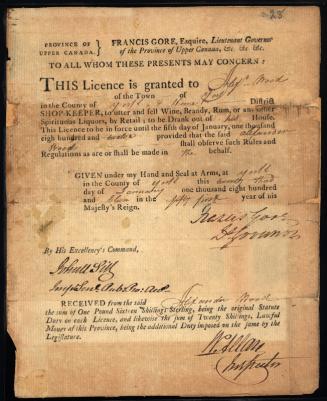 PROVINCE OF UPPER CANADA. } FRANCIS GORE, Esquire, Lieutenant Governor
of the Province of Upper Canada, &c. &c. &c.
TO ALL WHOM THESE PRESENTS MAY CONCERN:
THIS Licence is granted to Alexr Wood
of the Town of York
in the County of York Home District
SHOP-KEEPER, to utter and sell Wine, Brandy, Rum, or any other
Spirituous Liquors, by Retail; to be Drank out of his House.
This Licence to be in force until the fifth day of January, one thousand
eight hundred and twelve provided the said Alexander
Wood shall observe such Rules and
Regulations as are or shall be made in the behalf.
GIVEN under my Hand and Seal at Arms, at York
in the County of York this
day of January one thousand eight hundred
and Eleven in the fifty first year of his
Majesty's Reign.
Francis Gore
Lt Governor
By His Excellency's Command,
RECEIVED from the said Alexander Wood
the sum of One Pound Sixteen Shillings Sterling, being the original Statute
Duty on each Licence, and likewise the sum of Twenty Shillings, Lawful
Money of this Province, being the additional Duty imposed on the same by the
Legislature.
Inspector